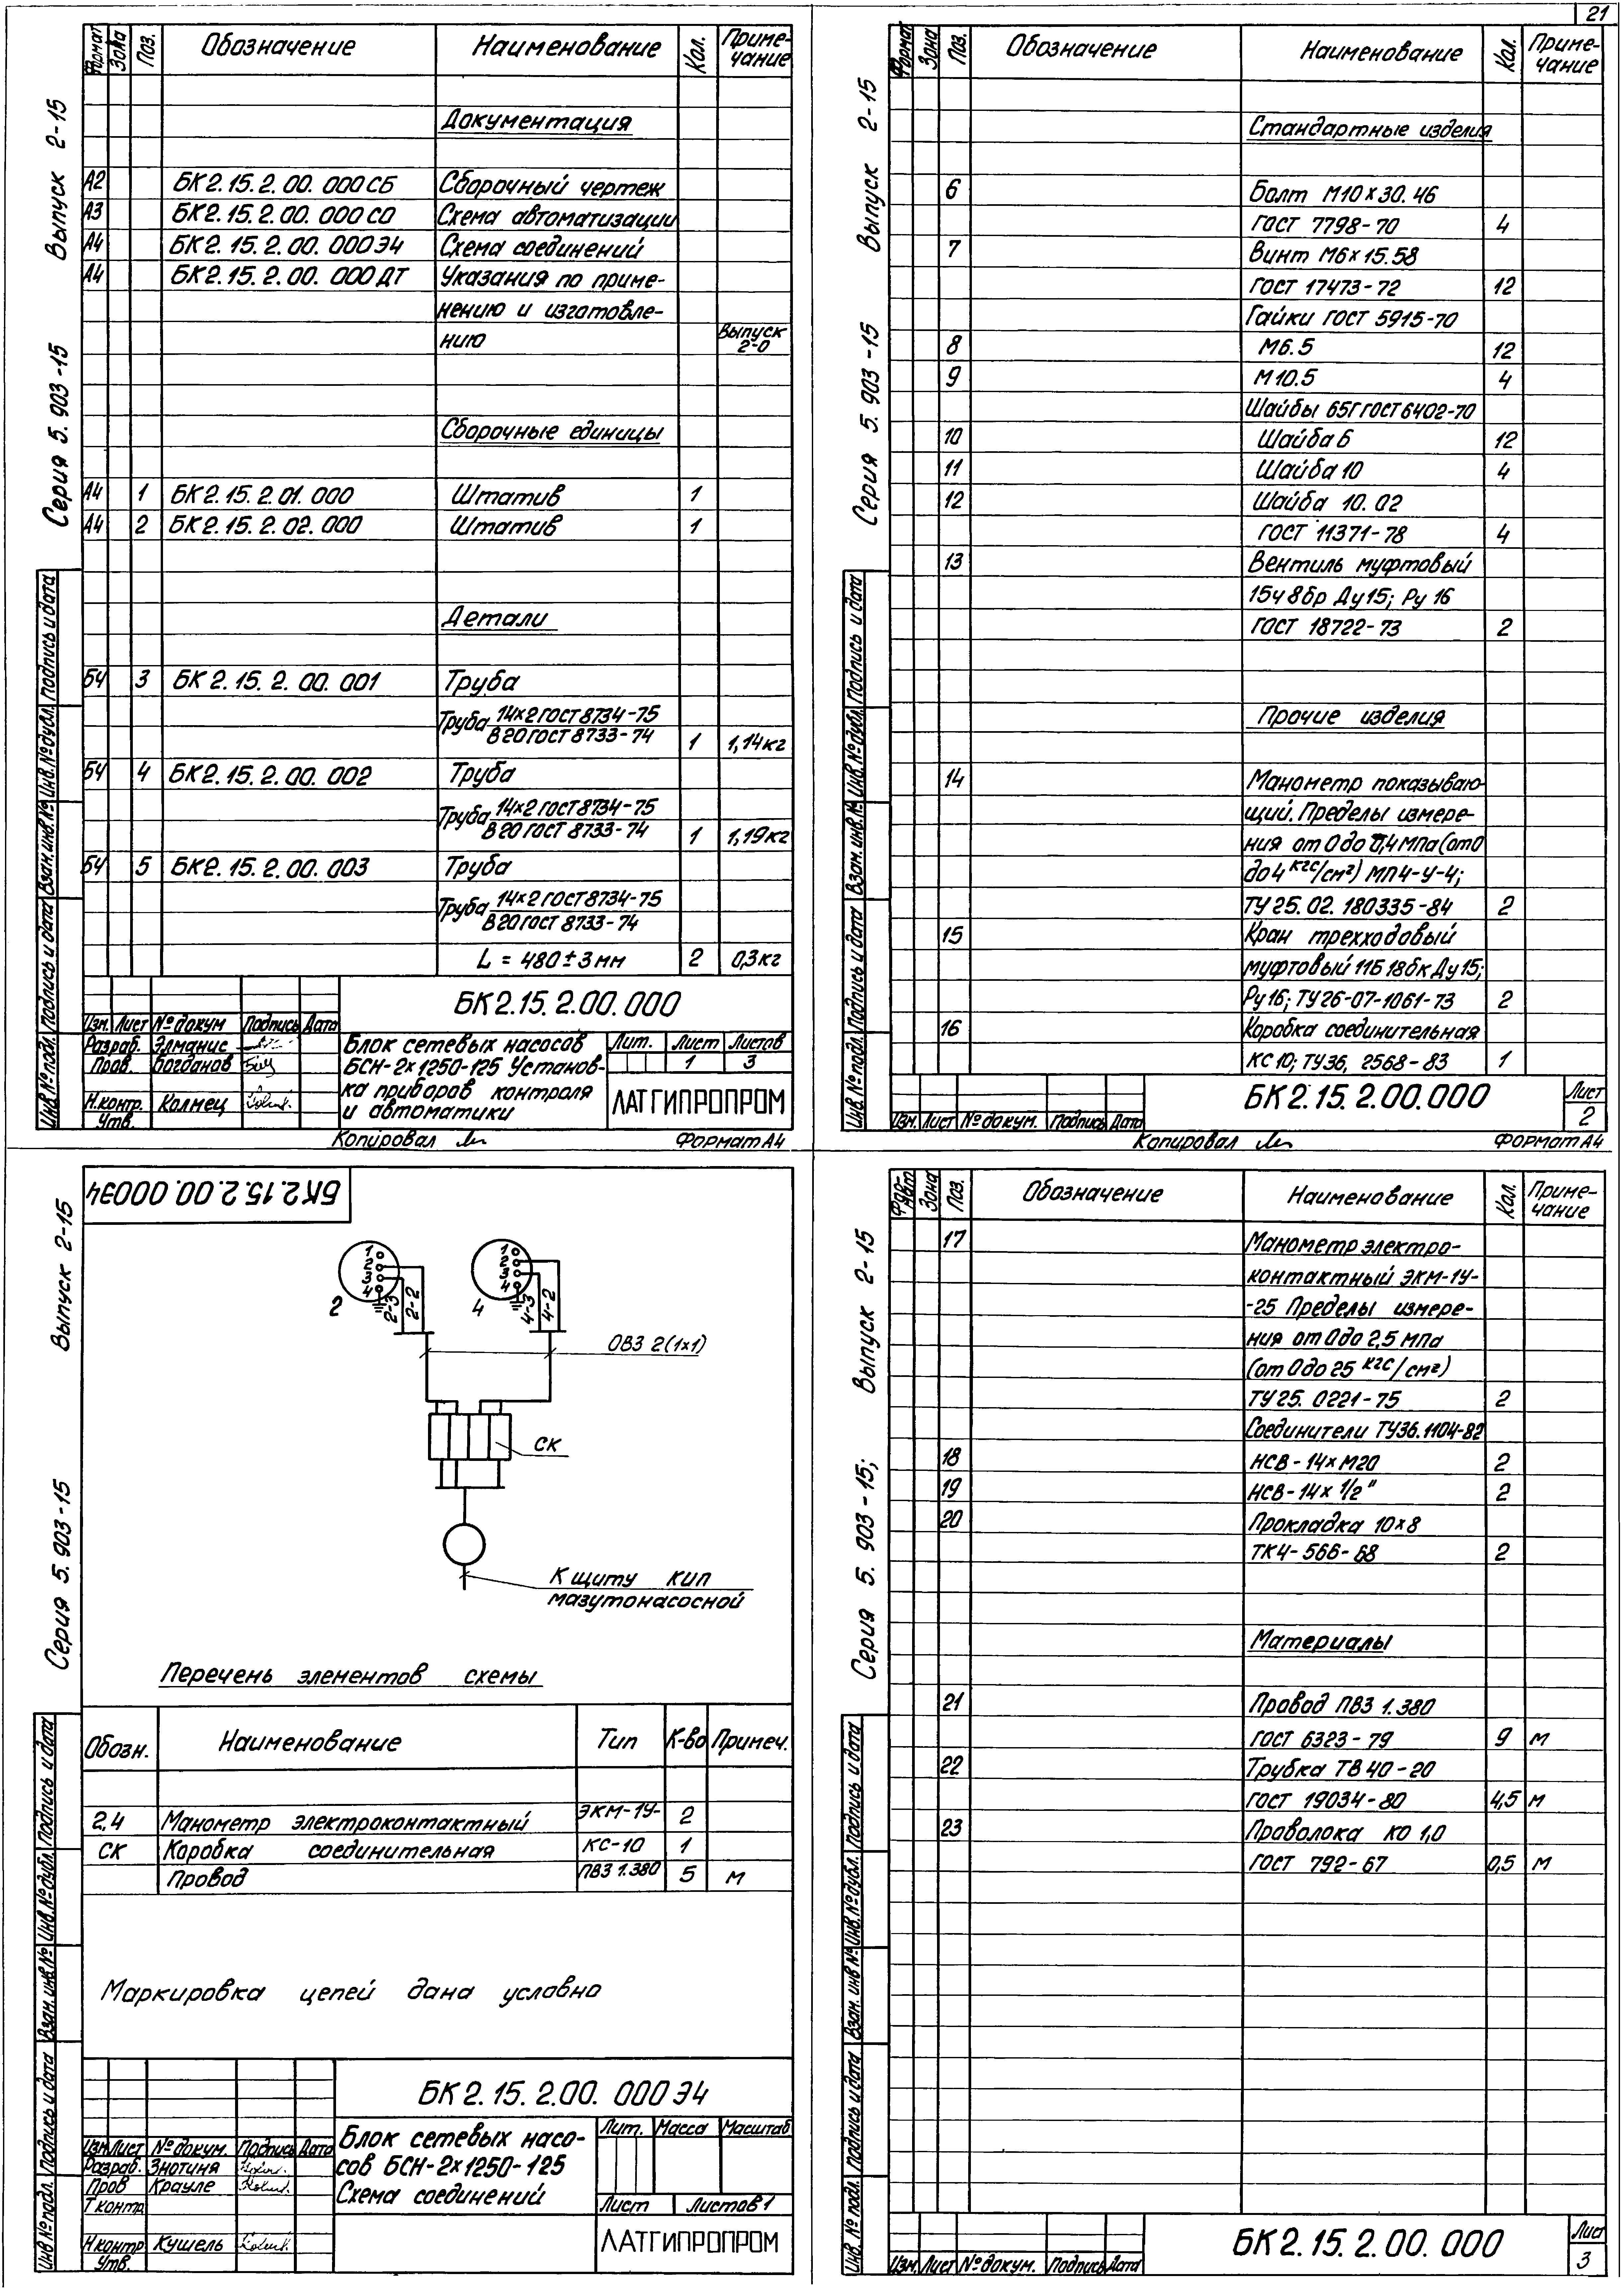 21
Серия 5.903-15 Выпуск 2-15
Формат Зона Поз. Обозначение Наименование Кол. Примечание
Документация
А2 БК2.15.2.00.000СБ Сборочный чертеж
А3 БК2.15.2.00.000СО Схема автоматизации
А4 БК2.15.2.00.000Э4 Схема соединений
А4 БК2.15.2.00.000ДТ Указания по приме-
нению и изготовле-
нию Выпуск 2-0
Сборочные единицы
А4 1 БК2.15.2.01.000 Штатив 1
А4 2 БК2.15.2.02.000 Штатив 1
Детали
БЧ 3 БК2.15.2.00.001 Труба
Труба 14×2 ГОСТ 8734-75
В20 ГОСТ 8733-74 1 1,14кг
БЧ 4 БК2.15.2.00.002 Труба
Труба 14×2 ГОСТ 8734-75
В20 ГОСТ 8733-74 1 1,19кг
БЧ 5 БК2.15.2.00.003 Труба
Труба 14×2 ГОСТ 8734-75
В20 ГОСТ 8733-74
L = 480±3мм 2 0,3кг
Инв.№подл. Подпись и дата Взам.инв.№ Инв.№дубл. Подпись и дата
БК2.15.2.00.000
Изм. Лист №докум Подпись Дата
Разраб. Элманис
Пров. Богданов
Н.контр. Колмец
Утв.
Блок сетевых насосов
БСН-2×1250-125 Установ-
ка приборов контроля
и автоматики
Лит. Лист Листов
1 3
ЛАТГИПРОПРОМ
Копировал Формат А4
Серия 5.903-15 Выпуск 2-15
Формат Зона Поз. Обозначение Наименование Кол. Примечание
Стандартные изделия
6 Болт М10×30.46
ГОСТ 7798-70 4
7 Винт М6×15.58
ГОСТ 17473-72 12
Гайки ГОСТ 5915-70
8 М6.5 12
9 М10.5 4
Шайбы 65Г ГОСТ 6402-70
10 Шайба 6 12
11 Шайба 10 4
12 Шайба 10.02
ГОСТ 11371-78 4
13 Вентиль муфтовый
15ч 8бр Ду15; Ру 16
ГОСТ 18722-73 2
Прочие изделия
14 Манометр показываю-
щий. Пределы измере-
ния от 0 до 0,4МПа (от 0
до 4 кгс/см²) МП4-У-4;
ТУ 25.02.180335-84 2
15 Кран трехходовый
муфтовый 11Б 18бк Ду15;
Ру16; ТУ26-07-1061-73 2
16 Коробка соединительная
КС10; ТУ36, 2568-83 1
Инв.№подл. Подпись и дата Взам.инв.№ Инв.№дубл. Подпись и дата
Изм. Лист №докум. Подпись Дата
БК2.15.2.00.000
Лист
2
Копировал Формат А4
Серия 5.903-15 Выпуск 2-15
БК2.15.2.00.000Э4
1
2
3
4
2
2-3
2-2
1
2
3
4
4
4-3
4-2
ОВЗ 2(1×1)
СК
К щиту КИП
мазутонасосной
Перечень элементов схемы
Обозн. Наименование Тип К-во Примеч.
2,4 Манометр электроконтактный ЭКМ-1У- 2
СК Коробка соединительная КС-10 1
Провод ПВ3 1.380 5 м
Маркировка цепей дана условно
Инв.№подл. Подпись и дата Взам.инв.№ Инв.№дубл. Подпись и дата
БК2.15.2.00.000Э4
Изм Лист №докум. Подпись Дата
Разраб. Знотиня
Пров Крауле
Т контр
Н контр Кушель
Утв.
Блок сетевых насо-
сов БСН-2×1250-125
Схема соединений
Лит. Масса Масштаб
Лист Листов 1
ЛАТГИПРОПРОМ
Серия 5.903-15; Выпуск 2-15
Формат Зона Поз. Обозначение Наименование Кол. Примечание
17 Манометр электро-
контактный ЭКМ-1У-
-25 Пределы измере-
ния от 0 до 2,5 МПа
(от 0 до 25 кгс/см²)
ТУ 25.0221-75 2
Соединители ТУ36.1104-82
18 НСВ-14×М20 2
19 НСВ-14×1/2" 2
20 Прокладка 10×8
ТК4-566-68 2
Материалы
21 Провод ПВ3 1.380
ГОСТ 6323-79 9 м
22 Трубка ТВ 40-20
ГОСТ 19034-80 4,5 м
23 Проволока КО 1,0
ГОСТ 792-67 0,5 м
Инв.№подл. Подпись и дата Взам.инв.№ Инв.№дубл. Подпись и дата
Изм. Лист №докум. Подпись Дата
БК2.15.2.00.000
Лист
3